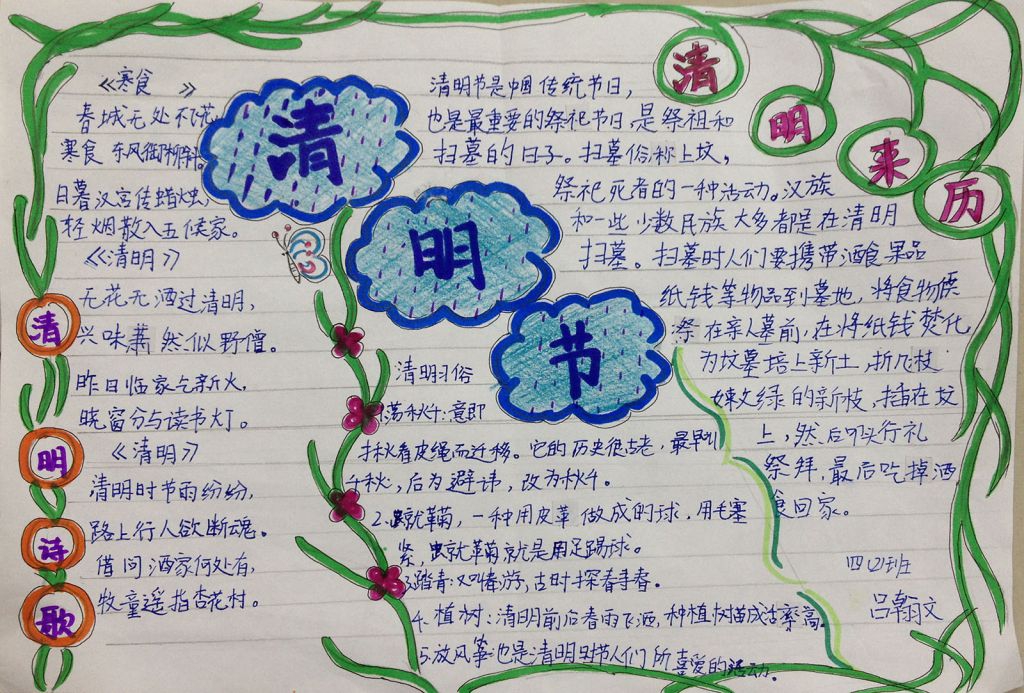 清
明
节
清明诗歌
《寒食 》
春城无处不飞花,
寒食东风御柳斜。
日暮汉宫传蜡烛,
轻烟散入五侯家。
《清明》
无花无酒过清明,
兴味萧然似野僧。
昨日临家乞新火,
晓窗分与读书灯。
《清明》
清明时节雨纷纷,
路上行人欲断魂。
借问酒家何处有,
牧童遥指杏花村。
清明来历
清明节是中国传统节日,
也是最重要的祭祀节日,是祭祖和
扫墓的日子。扫墓俗称上坟,
祭祀死者的一种活动。汉族
和一些少数民族大多者都是在清明
扫墓。扫墓时人们要携带酒食果品
纸钱等物品到墓地,将食物供
祭在亲人墓前,在将纸钱焚化
为坟墓培上新土,折几枝
嫩绿的新枝,插在坟
上,然后叩头行礼
祭拜,最后吃掉酒
食回家。
清明习俗
荡秋千:意即
揪着皮绳而迁移。它的历史很古老,最早叫
千秋,后为避讳,改为秋千。
2.蹴鞠,一种用皮革做成的球,用毛塞
紧,蹴鞠就是用足踢球。
3踏青又叫春游,古时探春寻春。
4.植树:清明前后春雨飞洒,种植树苗成活率高
5.放风筝也是清明时节人们所喜爱的活动。
四(2)班
吕翰文